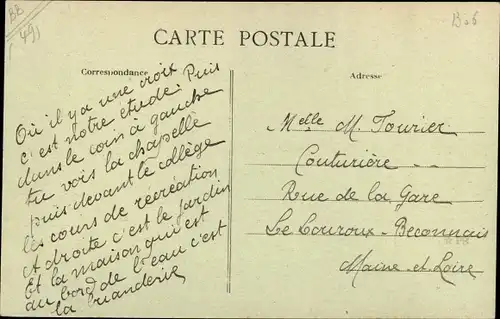 BB
491
B-6
CARTE POSTALE
Correspondance
Adresse
Où il y a une croix
c'est notre étude. Puis
dans le coin à gauche
tu vois la chapelle
puis devant le collège
les cours de récréation
A droite c'est le jardin
Et la maison qui est
au bord de l'eau c'est
la buanderie,
Melle M. Fourier
Couturière --
Rue de la Gare
Le Louroux-Béconnais
Maine-et-Loire